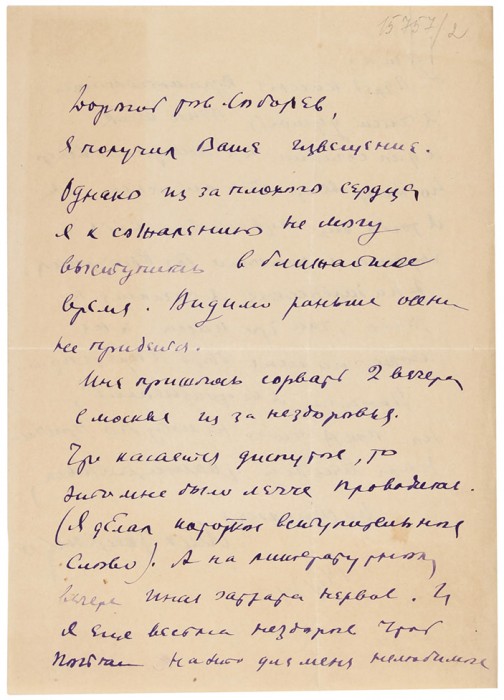 15757/2
Дорогой тов. Соболев,
я получил Ваше извещение.
Однако из за плохого сердца
я к сожалению не могу
выступить в ближайшее
время. Видимо раньше осени
не придется.
Мне пришлось сорвать 2 вечера
в Москве из за нездоровья.
Что касается диспутов, то
это мне было легче проводить.
(Я делал короткое вступительное
слово). А на литературном
вечере иная затрата нервов. И
я еще весьма нездоров чтоб
пойти на это для меня нелюбимое